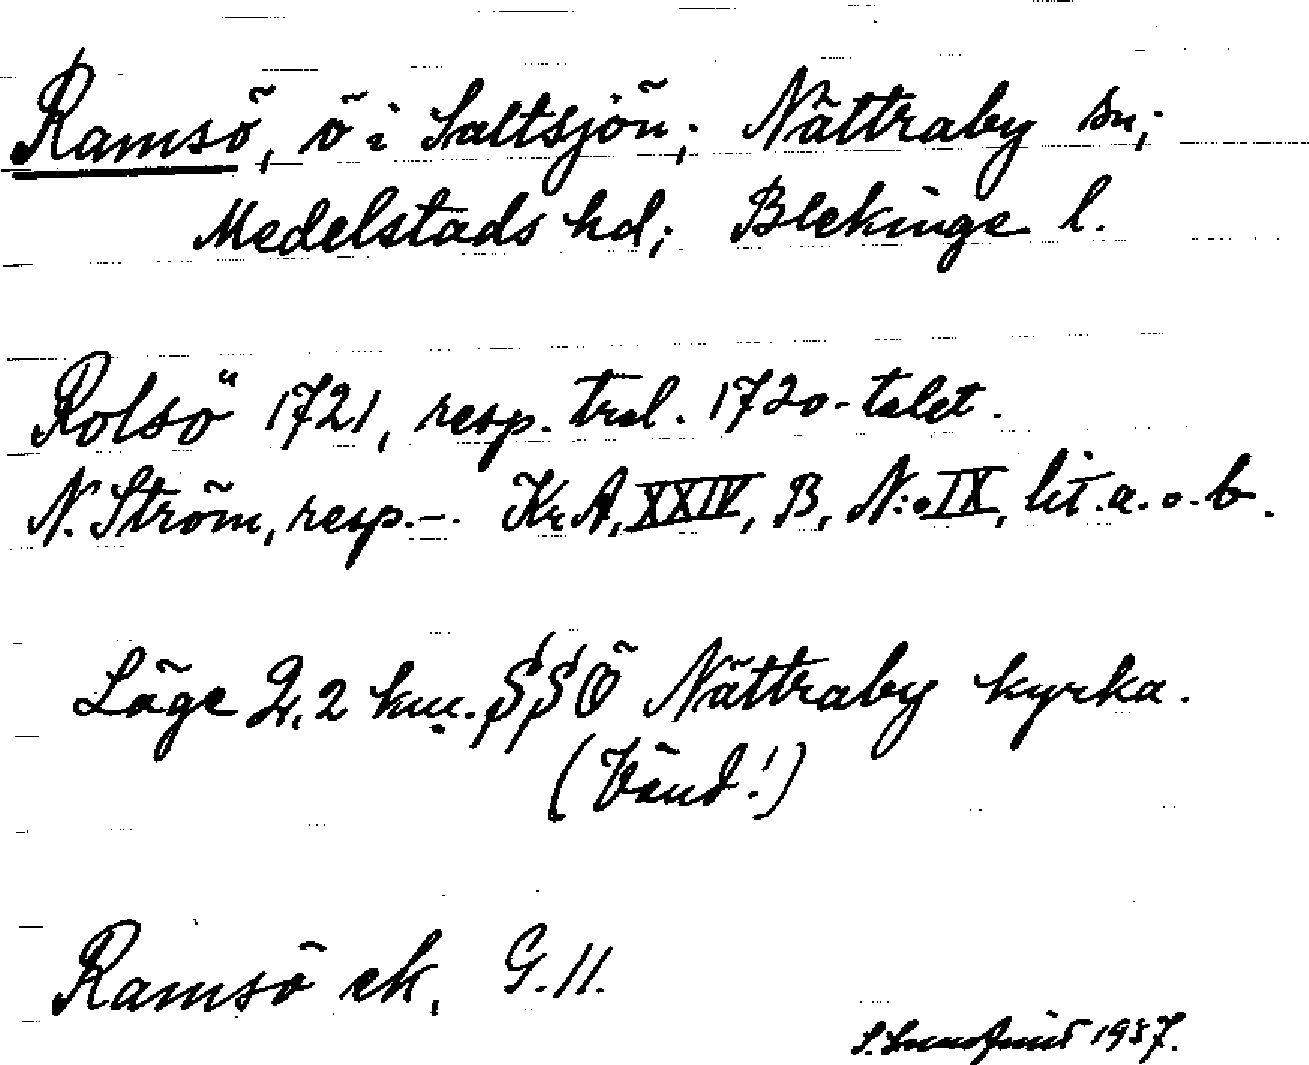 Ramsö, ö i Saltsjön; Nättraby sn;
Medelstads hd; Blekinge l.
Rolsö" 1721, resp. trol. 1720-talet.
N. Ström, resp. – Kr A, XXIV, B, N:o IX, lit. a. o. b.
Läge 2,2 km. SSÖ Nättraby kyrka.
(Vänd!)
Ramsö ek, G. 11.
S. 1937.